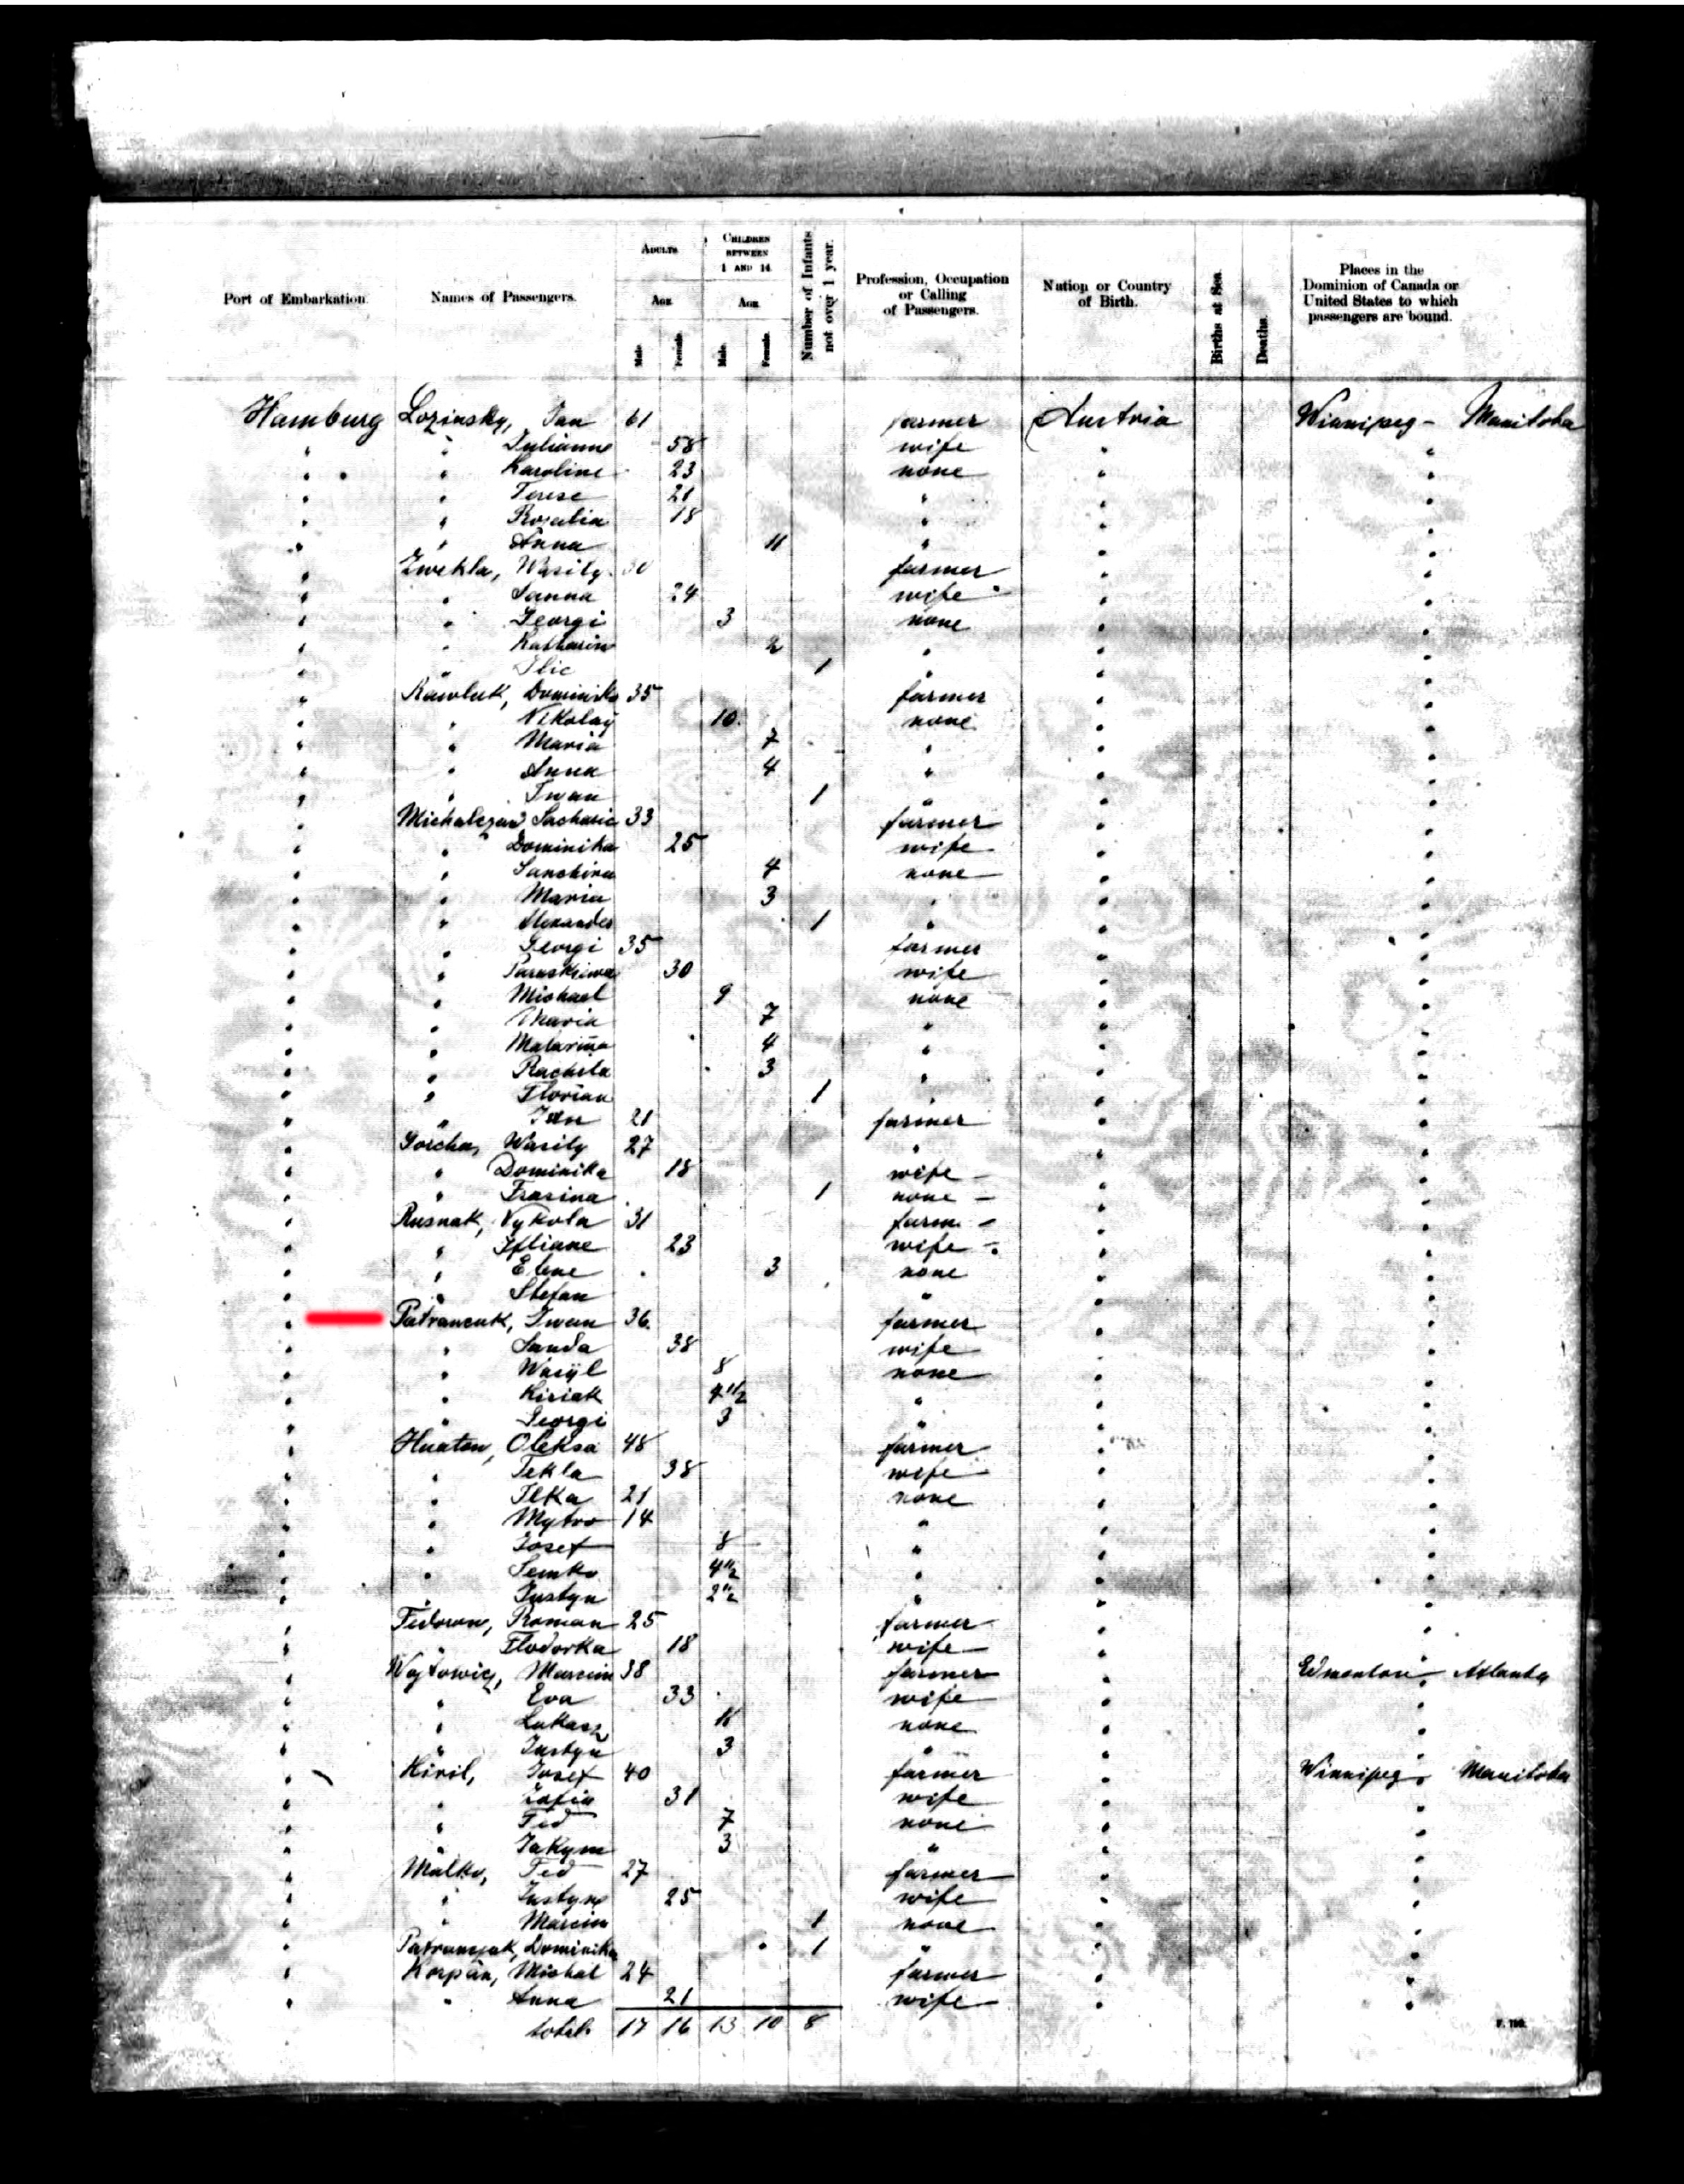 Port of Embarkation. Names of Passengers. ADULTS AGE Male. Female. CHILDREN BETWEEN 1 AND 14 AGE Male. Female. Number of Infants not over 1 year. Profession, Occupation or Calling of Passengers. Nation or Country of Birth. Births at Sea. Deaths. Places in the Dominion of Canada or United States to which passengers are bound.
Hamburg Lozinsky, Jan 61 farmer Austria Winnipeg - Manitoba
" " Julianne 58 wife " "
" " Karoline 23 none " "
" " Terese 21 " " "
" " Rosalia 18 " " "
" " Anna 11 " " "
" Zwekla, Wasily 30 farmer " "
" " Sanna 24 wife " "
" " Georgi 3 none " "
" " Katharin 2 " " "
" " Ilie 1 " " "
" Rawluk, Dominika 35 farmer " "
" " Nikolay 10 none " "
" " Maria 7 " " "
" " Anna 4 " " "
" " Iwan 1 " " "
" Sacharie 33 farmer " "
" " Dominika 25 wife " "
" " 4 none " "
" " Maria 3 " " "
" " Alexander 1 " " "
" " Georgi 35 farmer " "
" " Paraskiewa 30 wife " "
" " Michael 9 none " "
" " Maria 7 " " "
" " 4 " " "
" " Rachila 3 " " "
" " Florian 1 " " "
" " Jan 21 farmer " "
" Gorcha, Wasily 27 " " "
" " Dominika 18 wife - " "
" " Frasina 1 none - " "
" Rusnak, Nykola 31 farm - " "
" " 23 wife - " "
" " Elene 3 none " "
" " Stefan " " "
" Patrancuk, Iwan 36 farmer " "
" " Sanda 38 wife " "
" " Wasyl 8 none " "
" " Kiriak 4 1/2 " " "
" " Georgi 3 " " "
" Huatow, Oleksa 48 farmer " "
" " Tekla 38 wife " "
" " Ilka 21 none " "
" " Mytro 14 " " "
" " Josef 8 " " "
" " Semko 4 1/2 " " "
" " Justyn 2 1/2 " " "
" Fedorow, Roman 25 farmer " "
" " Flodorka 18 wife " "
" Wojtowicz, Marcin 38 farmer " Edmonton
" " Eva 33 wife " "
" " Lukasz 11 none " "
" " Justyn 3 " " "
" Kiril, Josef 40 farmer " Winnipeg Manitoba
" " Zofia 31 wife " "
" " Fed 7 none " "
" " Jakym 3 " " "
" Malko, Fed 27 farmer " "
" " Justyne 25 wife " "
" " Marcin 1 none " "
" Patrancyuk, Dominika 1 " " "
" Korpan, Michal 24 farmer " "
" " Anna 21 wife " "
total 17 16 13 10 8